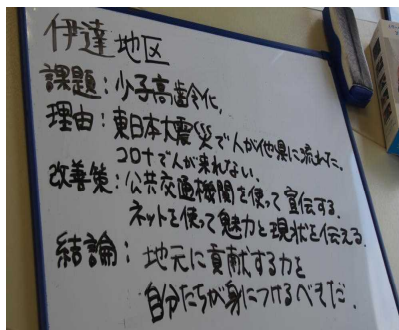 伊達地区
課題：少子高齢化,
理由：東日本大震災で人が他県に流れた,
コロナで人が来れない.
改善策：公共交通機関を使って宣伝する.
ネットを使って魅力と現状を伝える.
結論：地元に貢献する力を
自分たちが身につけるべきだ.